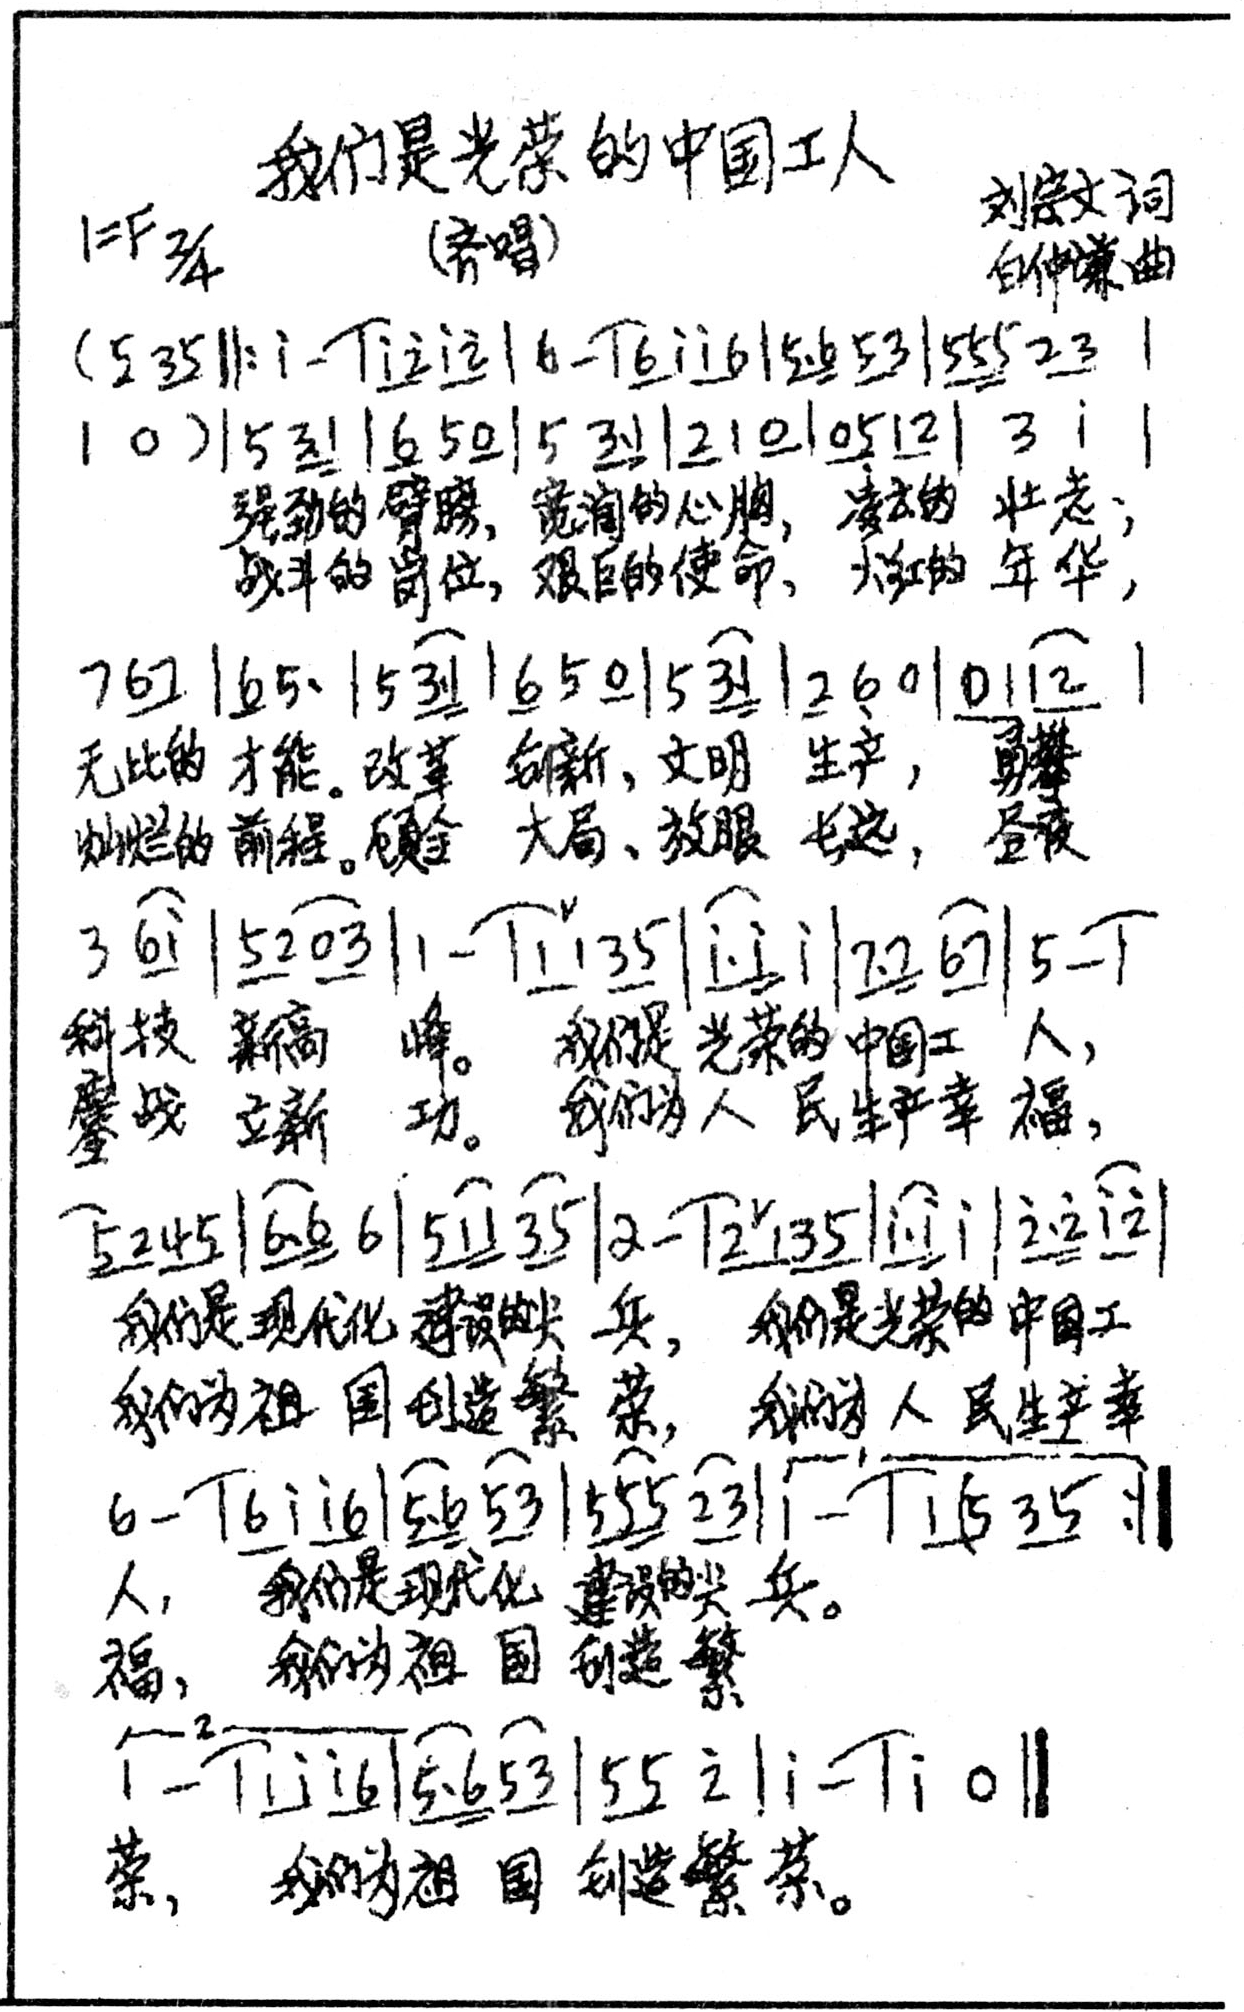 我们是光荣的中国工人
1=F 2/4 (齐唱) 刘宗文词
白仲谦曲
(5 35‖: i - | i 2 i 2 | 6 - | 6 i i 6 | 5.6 53 | 555 23 |
1 0 ) | 5 3.1 | 6 50 | 5 3.1 | 2 1 0 | 0512 | 3 i |
强劲的臂膀，宽阔的心胸，凌云的 壮志；
战斗的岗位，艰巨的使命，火红的 年华，
7 67 | 65. | 5 3.1 | 6 5 0 | 5 3.1 | 2 6 0 | 01 12 |
无比的 才能。改革 创新，文明 生产， 勇攀
灿烂的 前程。顾全 大局、放眼 长远， 昼夜
3 6i | 52 03 | 1 - | 1 1 35 | i.i i | 7.7 67 | 5 - |
科技 新高 峰。 我们是 光荣的 中国工 人，
鏖战 立新 功。 我们为人 民生产幸 福，
5245 | 6.6 6 | 511 35 | 2 - | 2 1 35 | i.i i | 2.2 i2 |
我们是现代化 建设的尖 兵， 我们是光荣的 中国工
我们为祖 国 创造繁 荣， 我们为人 民生产幸
6 - | 6 i i6 | 5.6 53 | 555 23 | i - | i (5 35 :‖
人， 我们是现代化 建设的尖 兵。
福， 我们为祖 国 创造繁
i - | i i i6 | 5.6 53 | 55 2 | i - | i 0 ‖
荣， 我们为祖 国 创造繁荣。